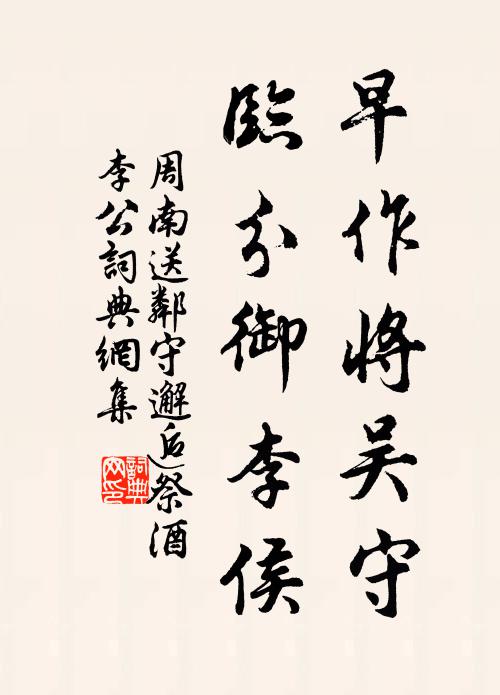 早作將吴守
臨分御李侯
周南送鄰守邂逅祭酒
李公詞典網集
詞典網印